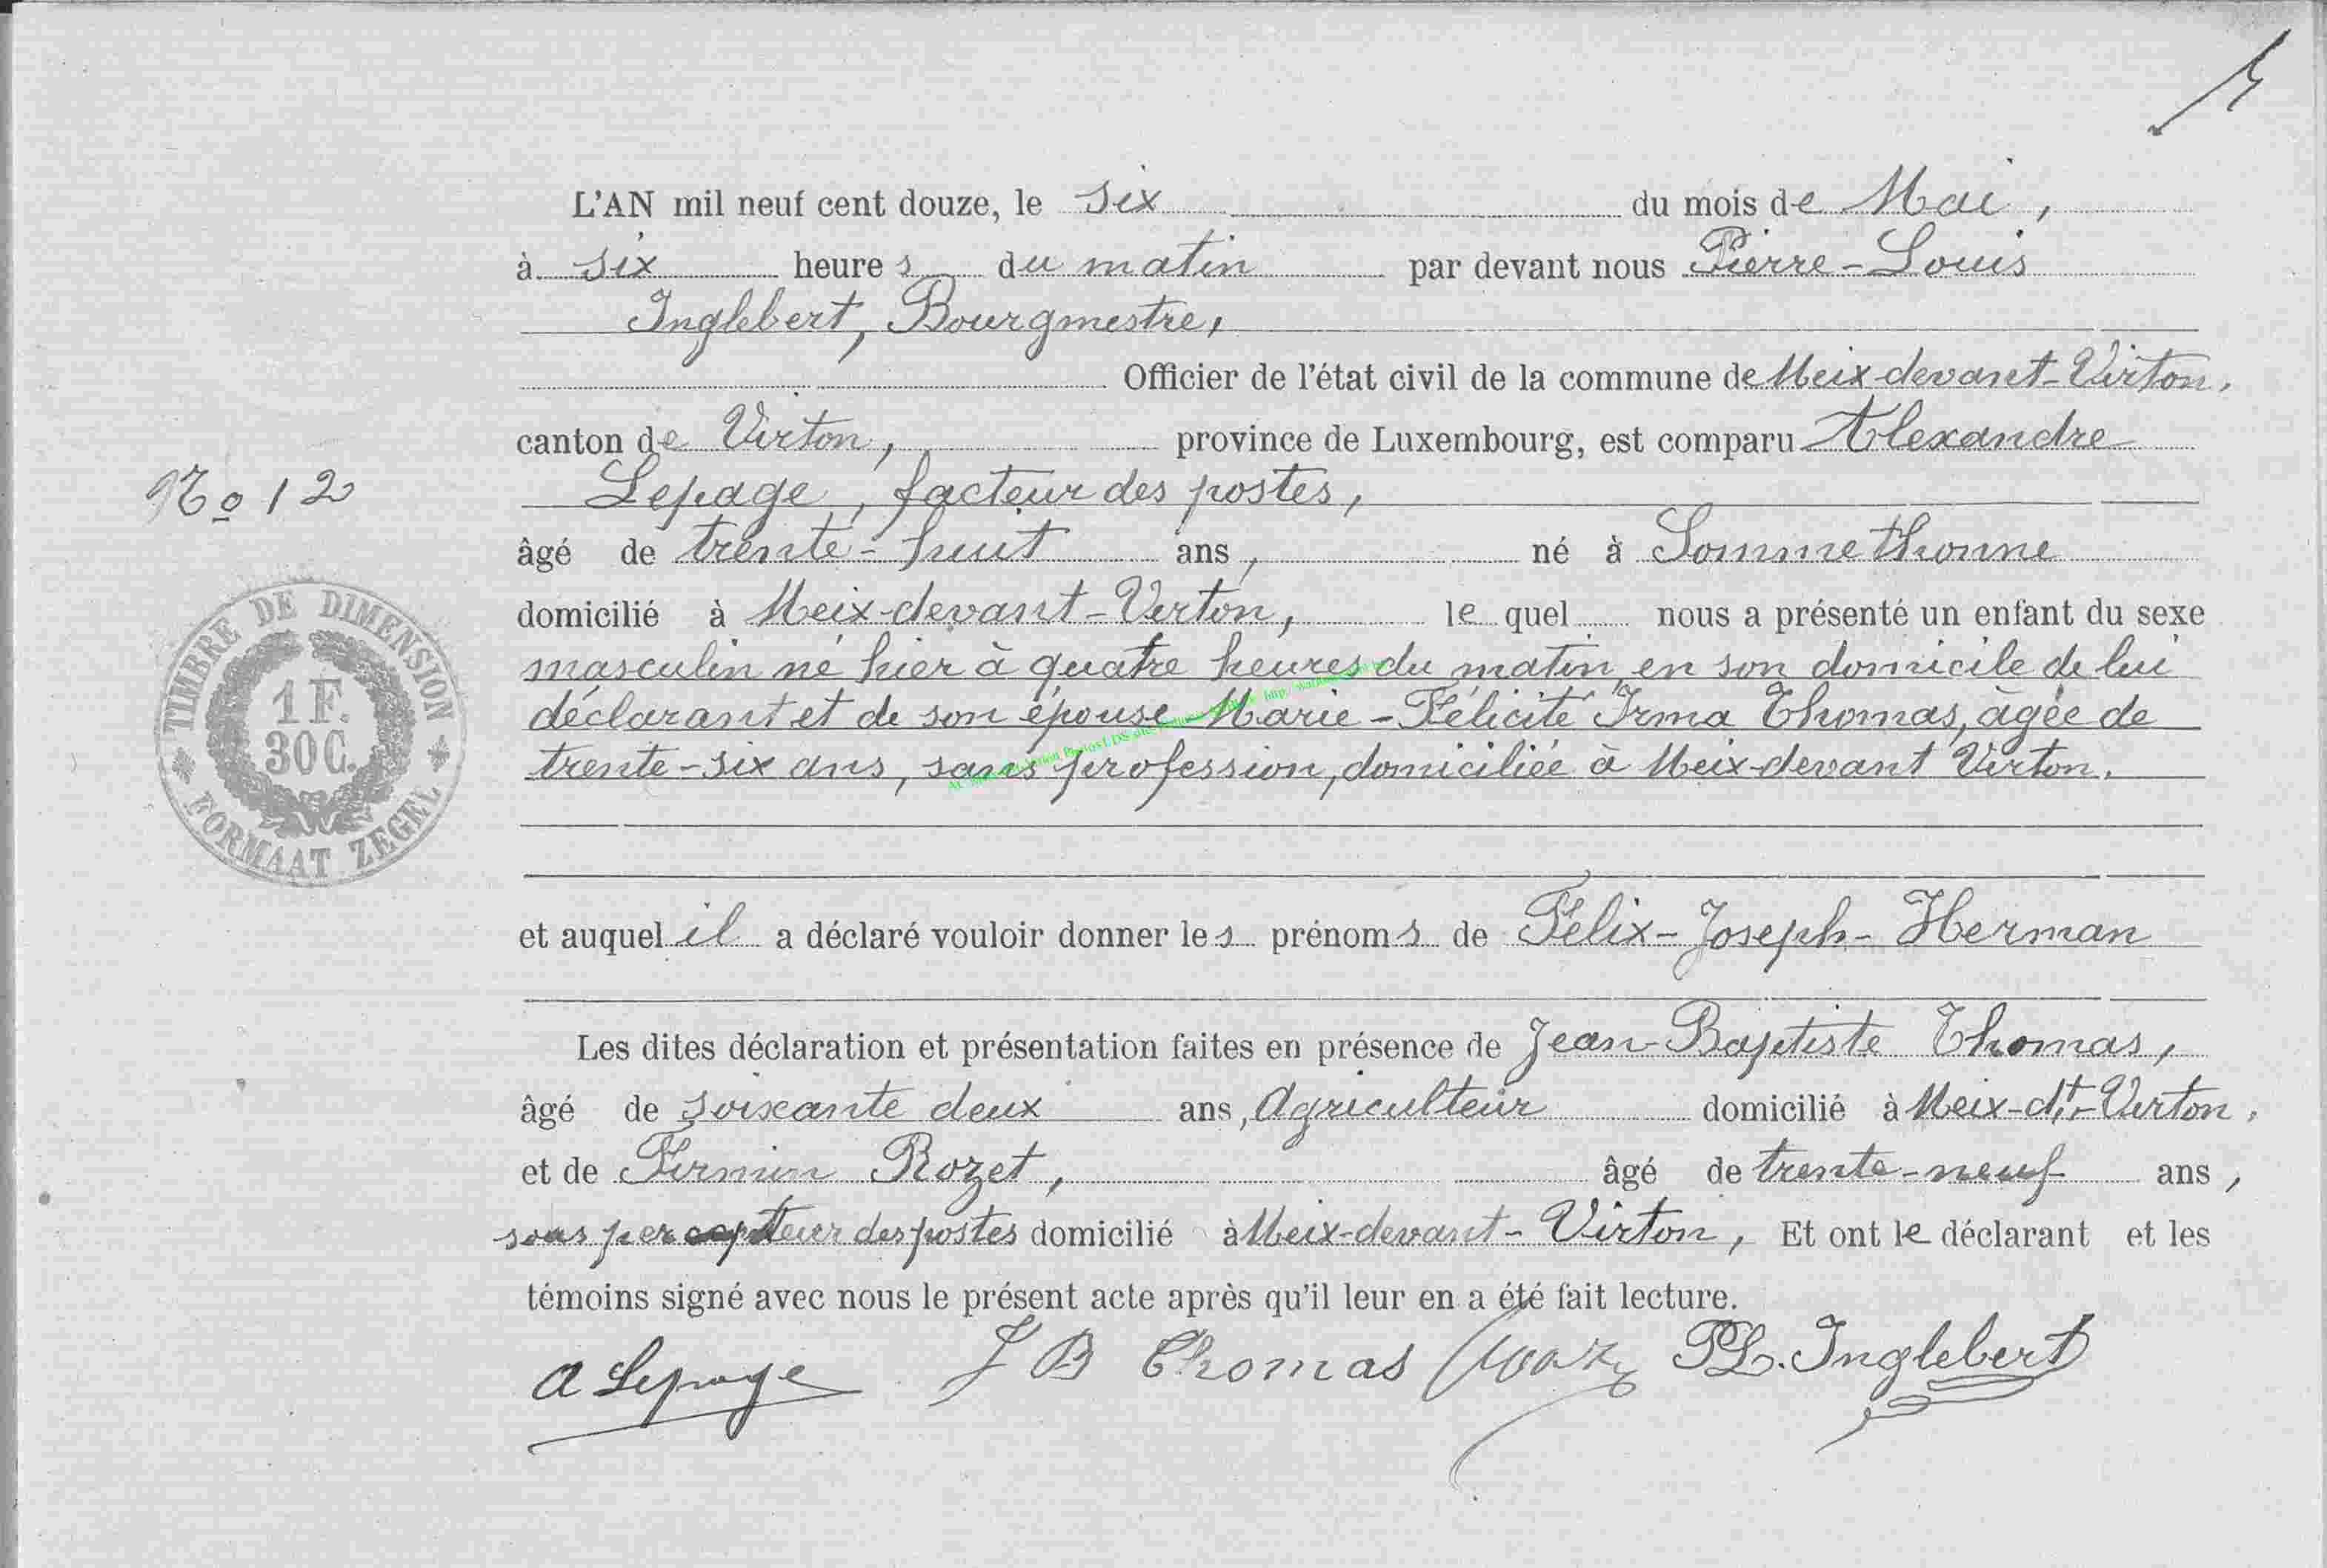 L'AN mil neuf cent douze, le six du mois de Mai,
à six heures du matin par devant nous Pierre-Louis
Inglebert, Bourgmestre,
Officier de l'état civil de la commune de Meix-devant-Virton,
canton de Virton, province de Luxembourg, est comparu Alexandre
Lepage, facteur des postes,
No 12
âgé de trente-huit ans, né à Sommethonne
domicilié à Meix-devant-Virton, lequel nous a présenté un enfant du sexe
masculin né hier à quatre heures du matin, en son domicile de lui
déclarant et de son épouse Marie-Félicité Irma Thomas, âgée de
trente-six ans, sans profession, domiciliée à Meix-devant Virton.
TIMBRE DE DIMENSION
1 F.
30 C.
FORMAAT ZEGEL
et auquel il a déclaré vouloir donner les prénoms de Félix-Joseph-Herman
Les dites déclaration et présentation faites en présence de Jean-Baptiste Thomas,
âgé de soixante deux ans, Agriculteur domicilié à Meix-dt-Virton,
et de Firmin Rozet, âgé de trente-neuf ans,
sous percepteur des postes domicilié à Meix-devant-Virton, Et ont le déclarant et les
témoins signé avec nous le présent acte après qu'il leur en a été fait lecture.
A Lepage J B Thomas PL. Inglebert